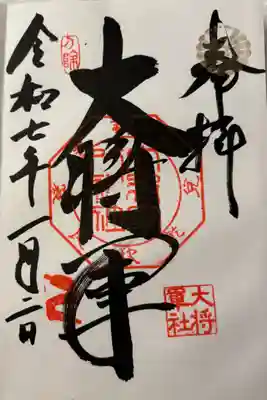 奉拝
大将軍
大将
軍社
方除
令和七年一月二日